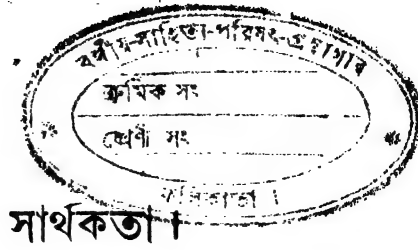 বঙ্গীয়-সাহিত্য-পরিষৎ-গ্রন্থাগার
ক্রমিক সং
শ্রেণী সং
কলিকাতা ।
সার্থকতা ।